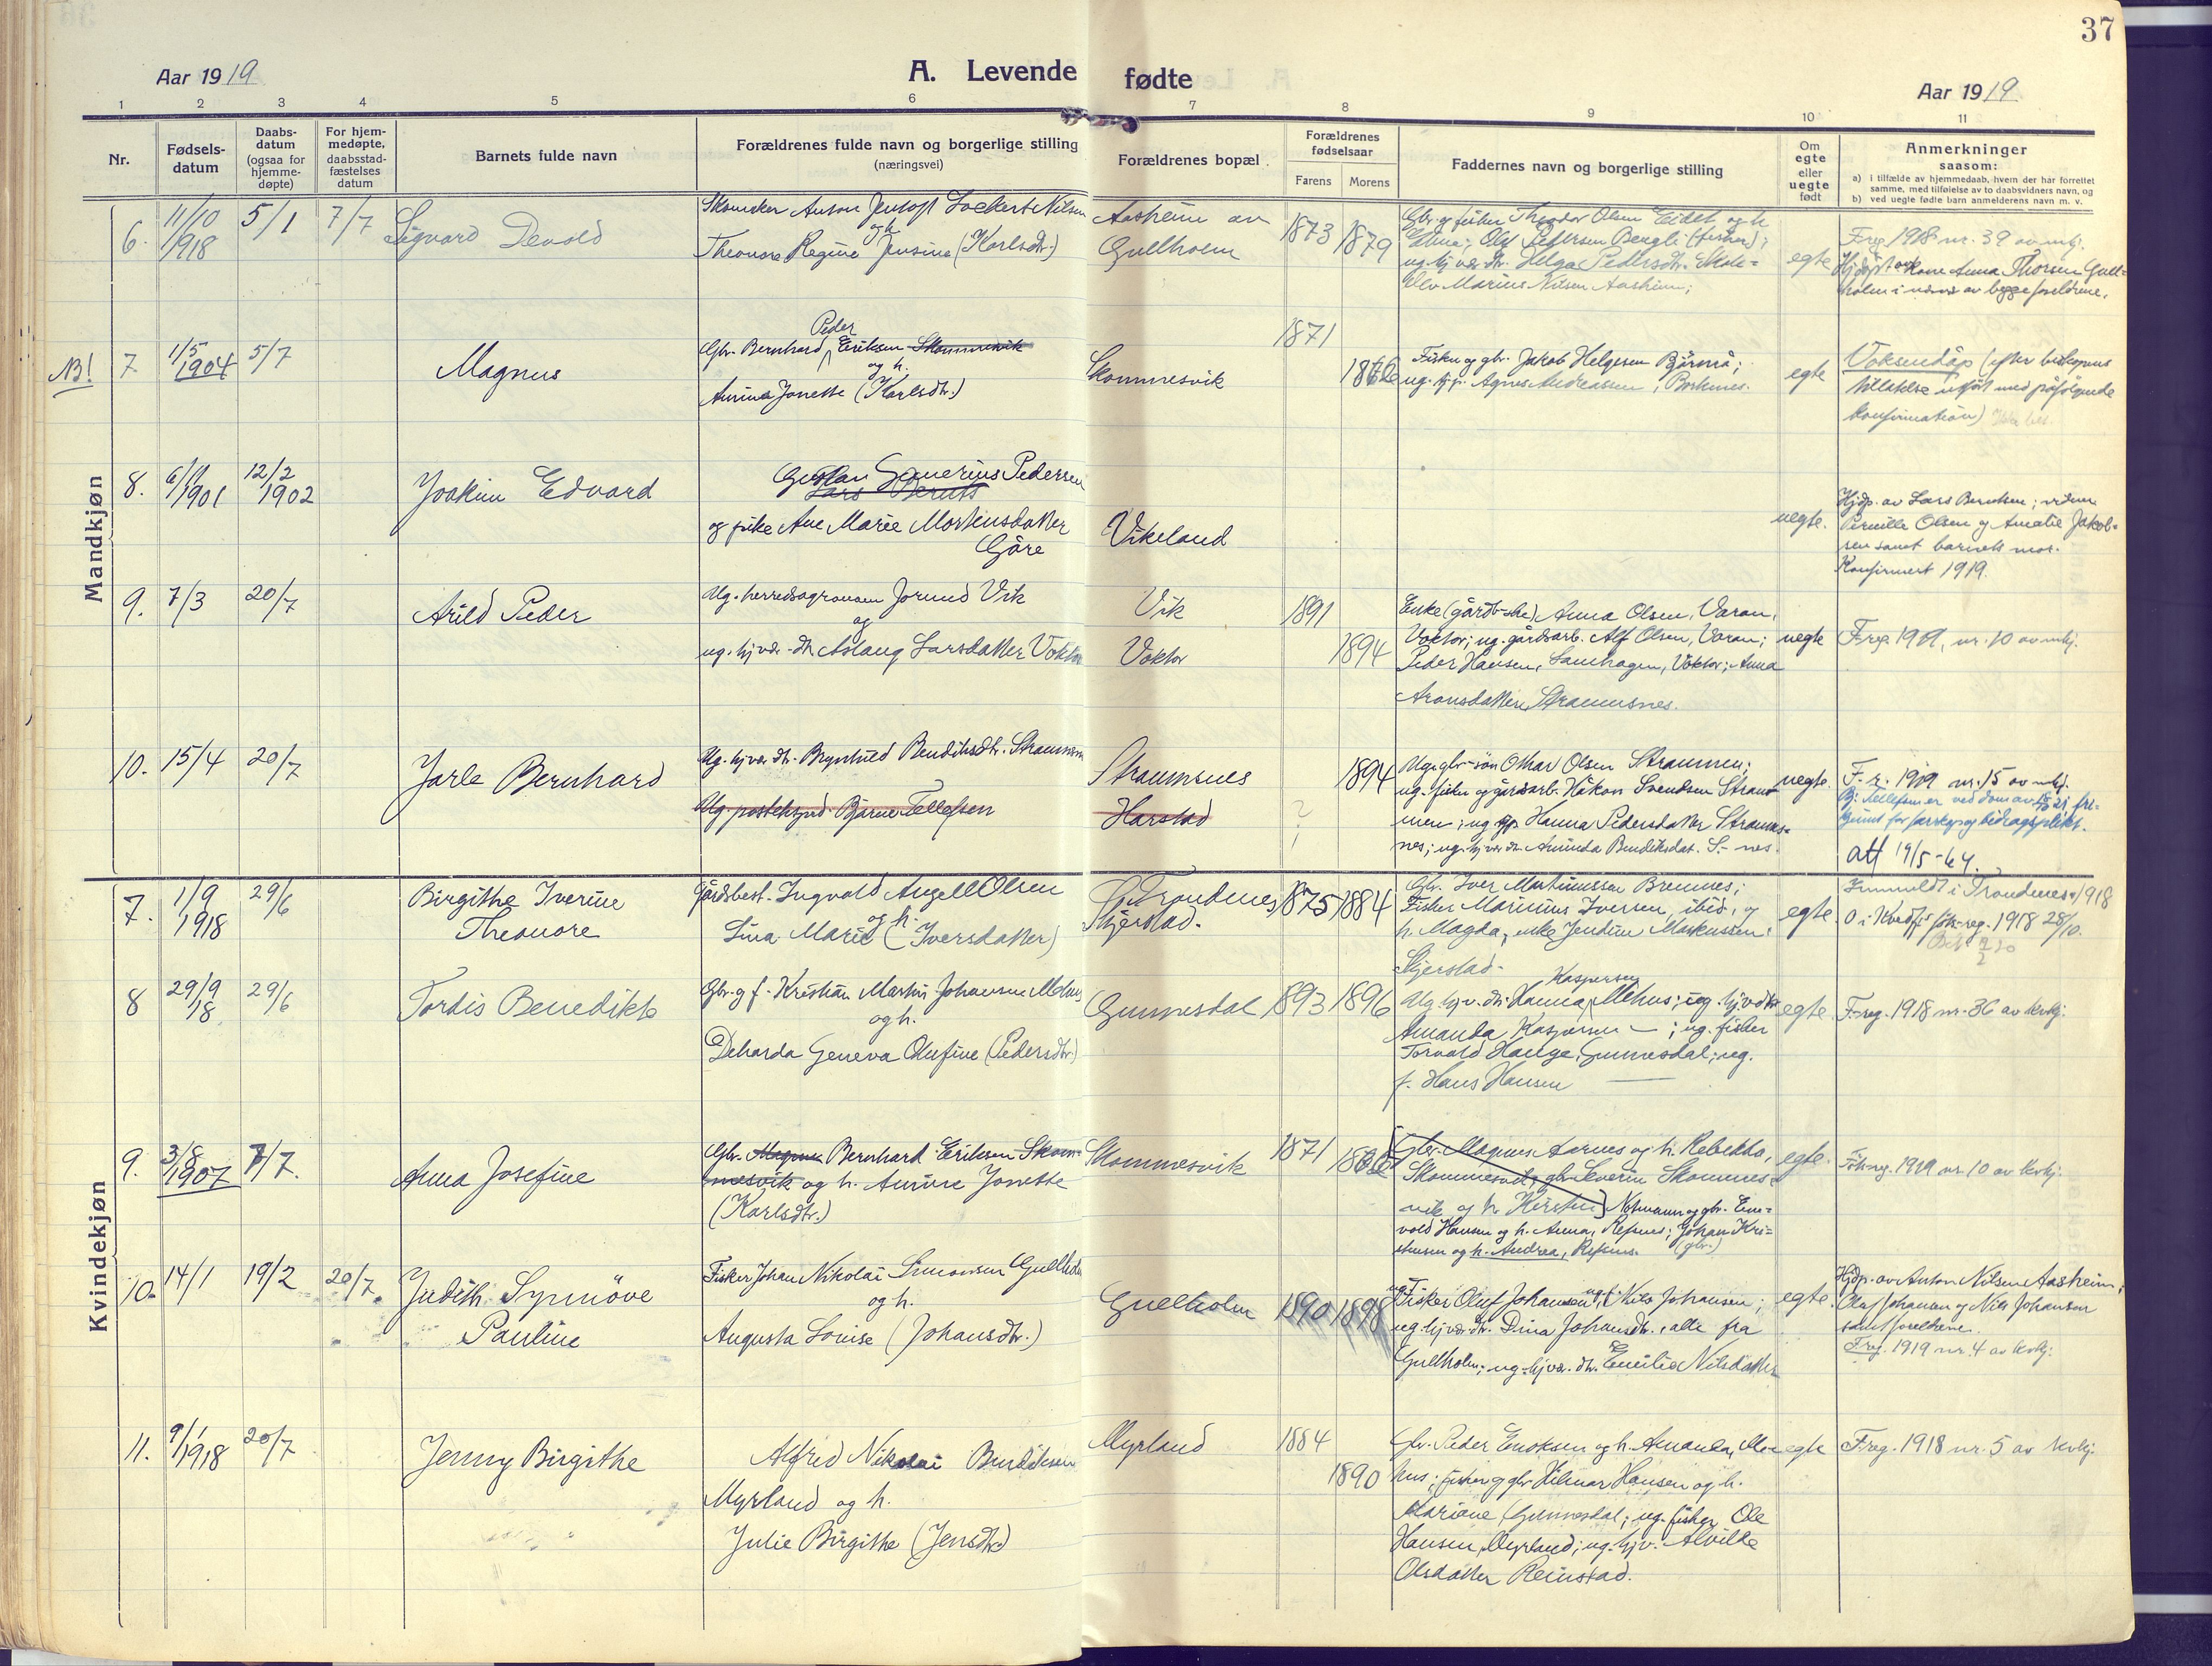 37
Aar 1919
A. Levende fødte
Aar 1919
1 2 3 4 5 6 7 8 9 10 11
Nr.
Fødsels-
datum
Daabs-
datum
(ogsaa for
hjemme-
døpte)
For hjem-
medøpte,
daabsstad-
fæstelses
datum
Barnets fulde navn
Forældrenes fulde navn og borgerlige stilling
(næringsvei)
Forældrenes bopæl
Forældrenes
fødselsaar
Farens Morens
Faddernes navn og borgerlige stilling
Om
egte
eller
uegte
født
Anmerkninger
saasom:
a) i tilfælde av hjemmedaab, hvem der har forrettet
samme, med tilføielse av to daabsvidners navn, og
b) ved uegte fødte barn anmelderens navn m. v.
Mandkjøn
6. 11/10 1918 5/1 7/7 Sigvard Devold
Skomaker Anton Jentoft Lockert Nilsen
og h.
Theonore Regine Jensine (Karlsdtr.)
Aasheim av
Gullholm
1873 1879
Gbr. og fisker Theodor Olsen Eidet og h.
Elina; Olaf Pettersen Bergli (fisker);
ug. hj. vær. dtr. Helga Pedersdtr. Skole-
elev Marius Nilsen Aasheim;
egte
Freg. 1918 nr. 39 av mkj.
Hjdøpt av Kone Anna Thorsen Gull-
holm i nærv. av begge foreldrene.
NB! 7 1/5 1904 5/7 Magnus
Peder
Gbr. Bernhard Eriksen Skommesvik
og h.
Aurine Jonette (Karlsdtr.)
Skommesvik
1871
Fisker og gbr. Jakob Helgesen
ug. hj. p. Agnes Andreassen,
egte
Voksendåp (efter biskopens
tillatelse utført med påfølgende
konfirmation)
8. 6/11 1901 12/2 1902 Joakim Edvard
Gustav Severius Pedersen
Lars Berntss
og pike Ane Marie Mortensdatter
Gåre
Vikeland
uegte.
Hjdp. av Lars Berntsen; vidner
Pernille Olsen og Amalie Jakob-
sen samt barnets mor.
Konfirmert 1919.
9. 7/3 20/7 Arild Peder
Ug. herredsagronom Jorund Vik
og
ug. hj. vær. dtr. Aslaug Larsdatter Voktor
Vik
Voktor
1891
1894
Enke (gårdb-ske) Anna Olsen, Varan,
Voktor; ug. gårdsarb. Alf Olsen, Varan;
Peder Hansen, Voktor; Anna
Aronsdatter, Straumsnes.
uegte
Freg. 1919, nr. 10 av mkj.
10. 15/4 20/7 Jarle Bernhard
Ug. hj. vær. dtr. Brynhild Bendiksdtr. Straumsn
Ug. postekspd. Bjarne Tellefsen
Straumsnes
Harstad
1894
?
Ug. gbr-søn Othar Olsen Straumen;
ug. fisker og gårdsarb. Håkon Svendsen Strau-
men; ug. Hanna Pedersdatter Straums-
nes; ug. hj. vær. dtr. Aminda Bendiksdat. S-nes.
uegte.
F. r. 1919 nr. 15 av mkj.
Bj. Tellefsen er ved dom av 21 fri-
kjent for farskap og bidragsplikt.
att 19/5-64.
Kvindekjøn
7. 1/9 1918 29/6 Birgithe Iverine
Theonore
Gårdbest. Ingvald Angell Olsen
og h.
Lina Marie (Iversdatter)
Trondenes
Skjerstad.
1875 1884
Gbr. Iver Martinussen Bremnes;
Fisker Marinius Iversen, ibid, og
h. Magda, enke Jendine Markussen
Skjerstad.
egte.
Innmeldt i Trondenes 1918
8 29/9 18 29/6 Tordis Benedikte
Gbr. og f. Kristian Martin Johansen Mehus
og h.
Deharda Geneva Olufine (Pedersdtr)
Gunnesdal
1893 1896
Kaspersen
Ug. hj. v. dtr. Hanna Mehus; ug. hj. v. dtr
Amanda Kaspersen — ; ug. fisker
Torvald Hauge, Gunnesdal; ug.
f. Hans Hansen —
egte.
Freg. 1918 nr. 36 av kvkj.
9. 3/8 1907 7/7. Anna Josefine
Gbr. Magnus Bernhard Eriksen Skom-
mesvik og h. Aurine Jonette
(Karlsdtr.)
Skommesvik
1871
[Gbr. Magnus Aarnes og h. Rebekka,
Skommesvik; gbr. Severin Skommes-
vik og h. Kirstin] Notmann og gbr. Em-
vold Hansen og h. Anna, Refsnes; Johan Kri-
stensen og h. Andrea, Refsnes. (gbr.)
egte.
Fdreg. 1919 nr. 10 av kvkj.
10. 14/1 19/2 20/7. Judith Synnöve
Pauline
Fisker Johan Nikolai Simonsen Gullholm
og h.
Augusta Louise (Johansdtr.)
Gullholm
1890 1898
ug. Fisker Oluf Johansen, ug. f. Nils Johansen;
ug. hj. vær. dtr. Dina Johansdtr., alle fra
Gullholm; ug. hj. vær. dtr. Emilie Nilsdatter
egte.
Hjdp. av Anton Nilsen Aasheim;
Oluf Johansen og Nils Johansen
samt foreldrene.
Freg. 1919 nr. 4 av kvkj.
11. 9/1 1918 20/7 Jenny Birgithe
Alfred Nikolai Bendiksen
Myrland og h.
Julie Birgithe (Jensdtr.)
Myrland
1884
1890
Gbr. Peder Enoksen og h. Amanda, Me-
hus; fisker og gbr. Hilmar Hansen og h.
Mariane, Gunnesdal; ug. fisker Ole
Hansen, Myrland; ug. hj. v. Alvilde
Olsdatter Reinstad.
egte
Freg. 1918 nr. 5 av kvkj.